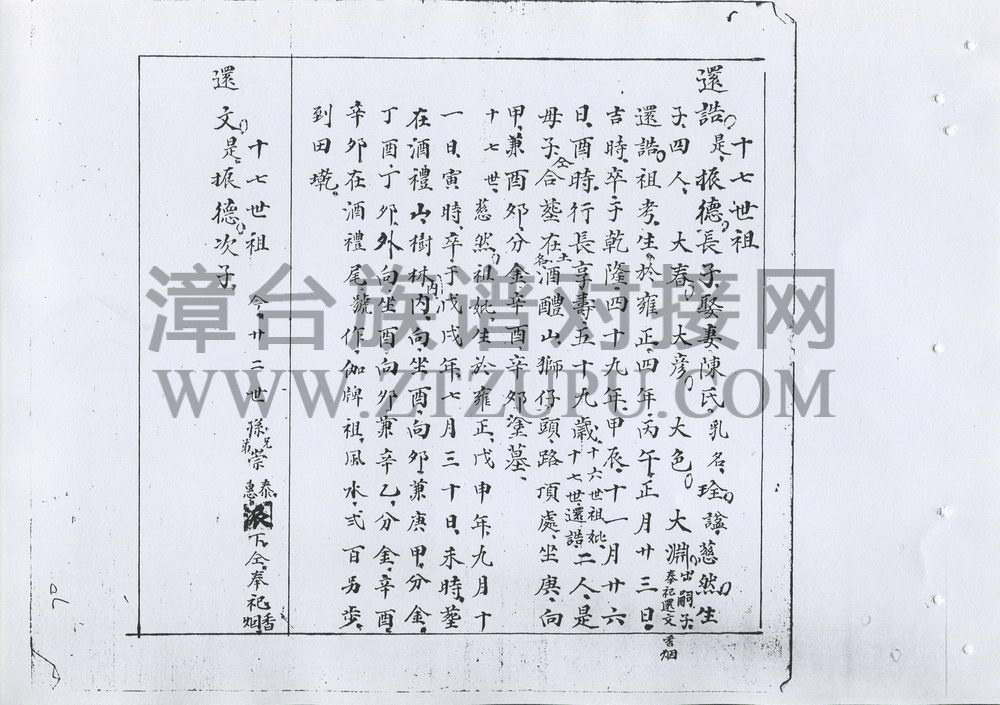 十七世祖
還誥是振德長子娶妻陳氏乳名珓諡慈然生
子四人大春大彦大色大淵出嗣子奉祀還文香烟
還誥祖考生於雍正四年丙午正月廿三日
吉時卒于乾隆四十九年甲辰十一月廿六
日酉時行長享壽五十九歲十六世祖妣十七世還誥二人是
母子仝合塟在土名酒醴山獅仔頭路頂處坐庚向
甲兼酉夘分金辛酉辛夘塗墓
十七世慈然祖妣生於雍正戊申年九月十
一日寅時卒于戊戌年七月三十日未時塟
在酒禮山樹林內向坐酉向夘兼庚甲分金
丁酉丁夘外向坐酉向夘兼辛乙分金辛酉
辛夘在酒禮尾號作伽牌祖風水弍百另步
到田墘
十七世祖
還文是振德次子
今廿二世孫兄弟崇泰惠派下仝奉祀香烟
漳台族谱对接网
WWW.ZTZUPU.COM